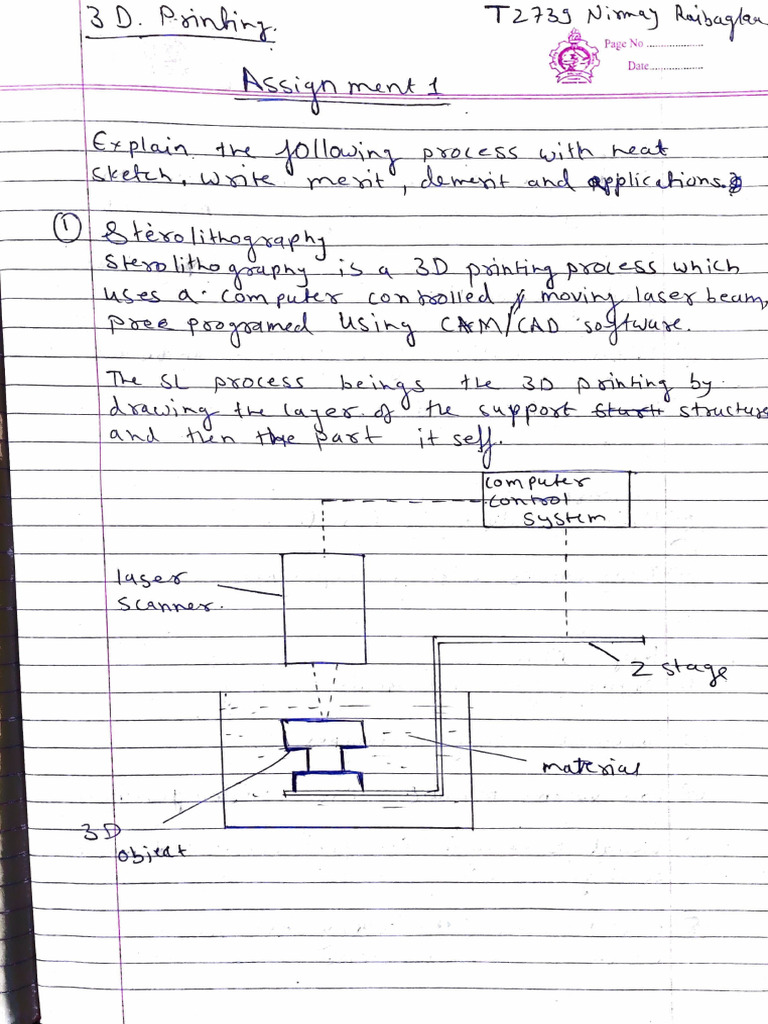 3 D. Printing.
T2739 Nirmay Raibagkar
Page No
Date
Assignment 1
Explain the following process with neat
sketch, write merit, demerit and applications.
① Sterolithography
Sterolithography is a 3D printing process which
uses a computer controlled moving laser beam,
pree programed using CAM/CAD software.
The SL process beings the 3D printing by
drawing the layer of the support structure
and then the part it self.
computer
control
system
laser
scanner.
Z stage
material
3D
object